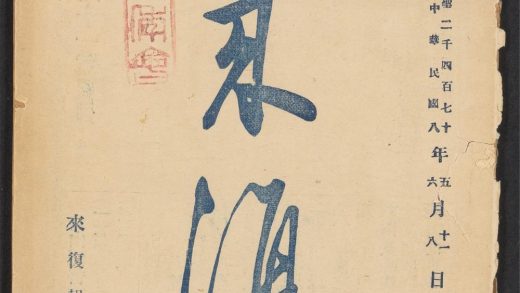 聖二千四百七十年五月十一日
中華民國八年六月八日
來復
來復